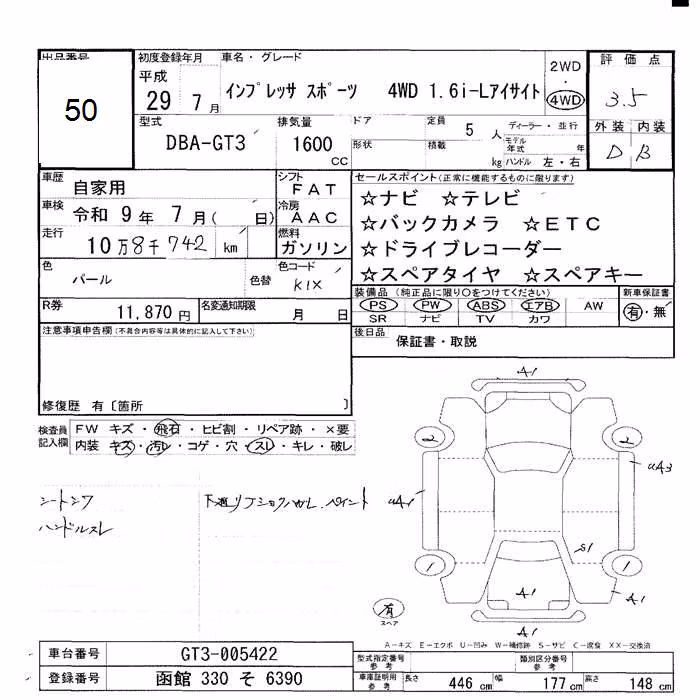 出品番号 初度登録年月 車名・グレード 2WD 評価点
50 平成 29 7月 インプレッサ スポーツ 4WD 1.6i-Lアイサイト ・ 4WD 3.5
型式 排気量 ドア 定員 5人 ディーラー・並行 外装 内装
DBA-GT3 1600CC 形状 積載 kg モデル年式 年 ハンドル 左・右 D B
車歴 自家用 シフト FAT セールスポイント(正常に機能するものに限ります)
車検 令和 9年 7月( 日) 冷房 AAC ☆ナビ ☆テレビ
走行 10万8千742 km 燃料 ガソリン ☆バックカメラ ☆ETC
☆ドライブレコーダー
色 パール 色替 色コード K1X ☆スペアタイヤ ☆スペアキー
R券 11,870円 名変通知期限 月 日 装備品(純正品に限り○をつけてください) 新車保証書
PS PW ABS エアB AW 有・無
SR ナビ TV カワ
注意事項申告欄(不具合内容等は具体的に記入して下さい) 後日品 保証書・取説
修復歴 有〔箇所 〕
検査員記入欄 FW キズ・飛石・ヒビ割・リペア跡・×要
内装 キズ・汚レ・コゲ・穴・スレ・キレ・破レ
ハンドルスレ
2 2
uA1 uA3
S1
1 1
A1 A1
A1
有
スペア
A-キズ E-エクボ U-凹み W-補修跡 S-サビ C-腐食 XX-交換済
車台番号 GT3-005422 型式指定番号 参考 類別区分番号 参考
登録番号 函館 330 そ 6390 車庫証明用 参考 長さ 446cm 幅 177cm 高さ 148cm